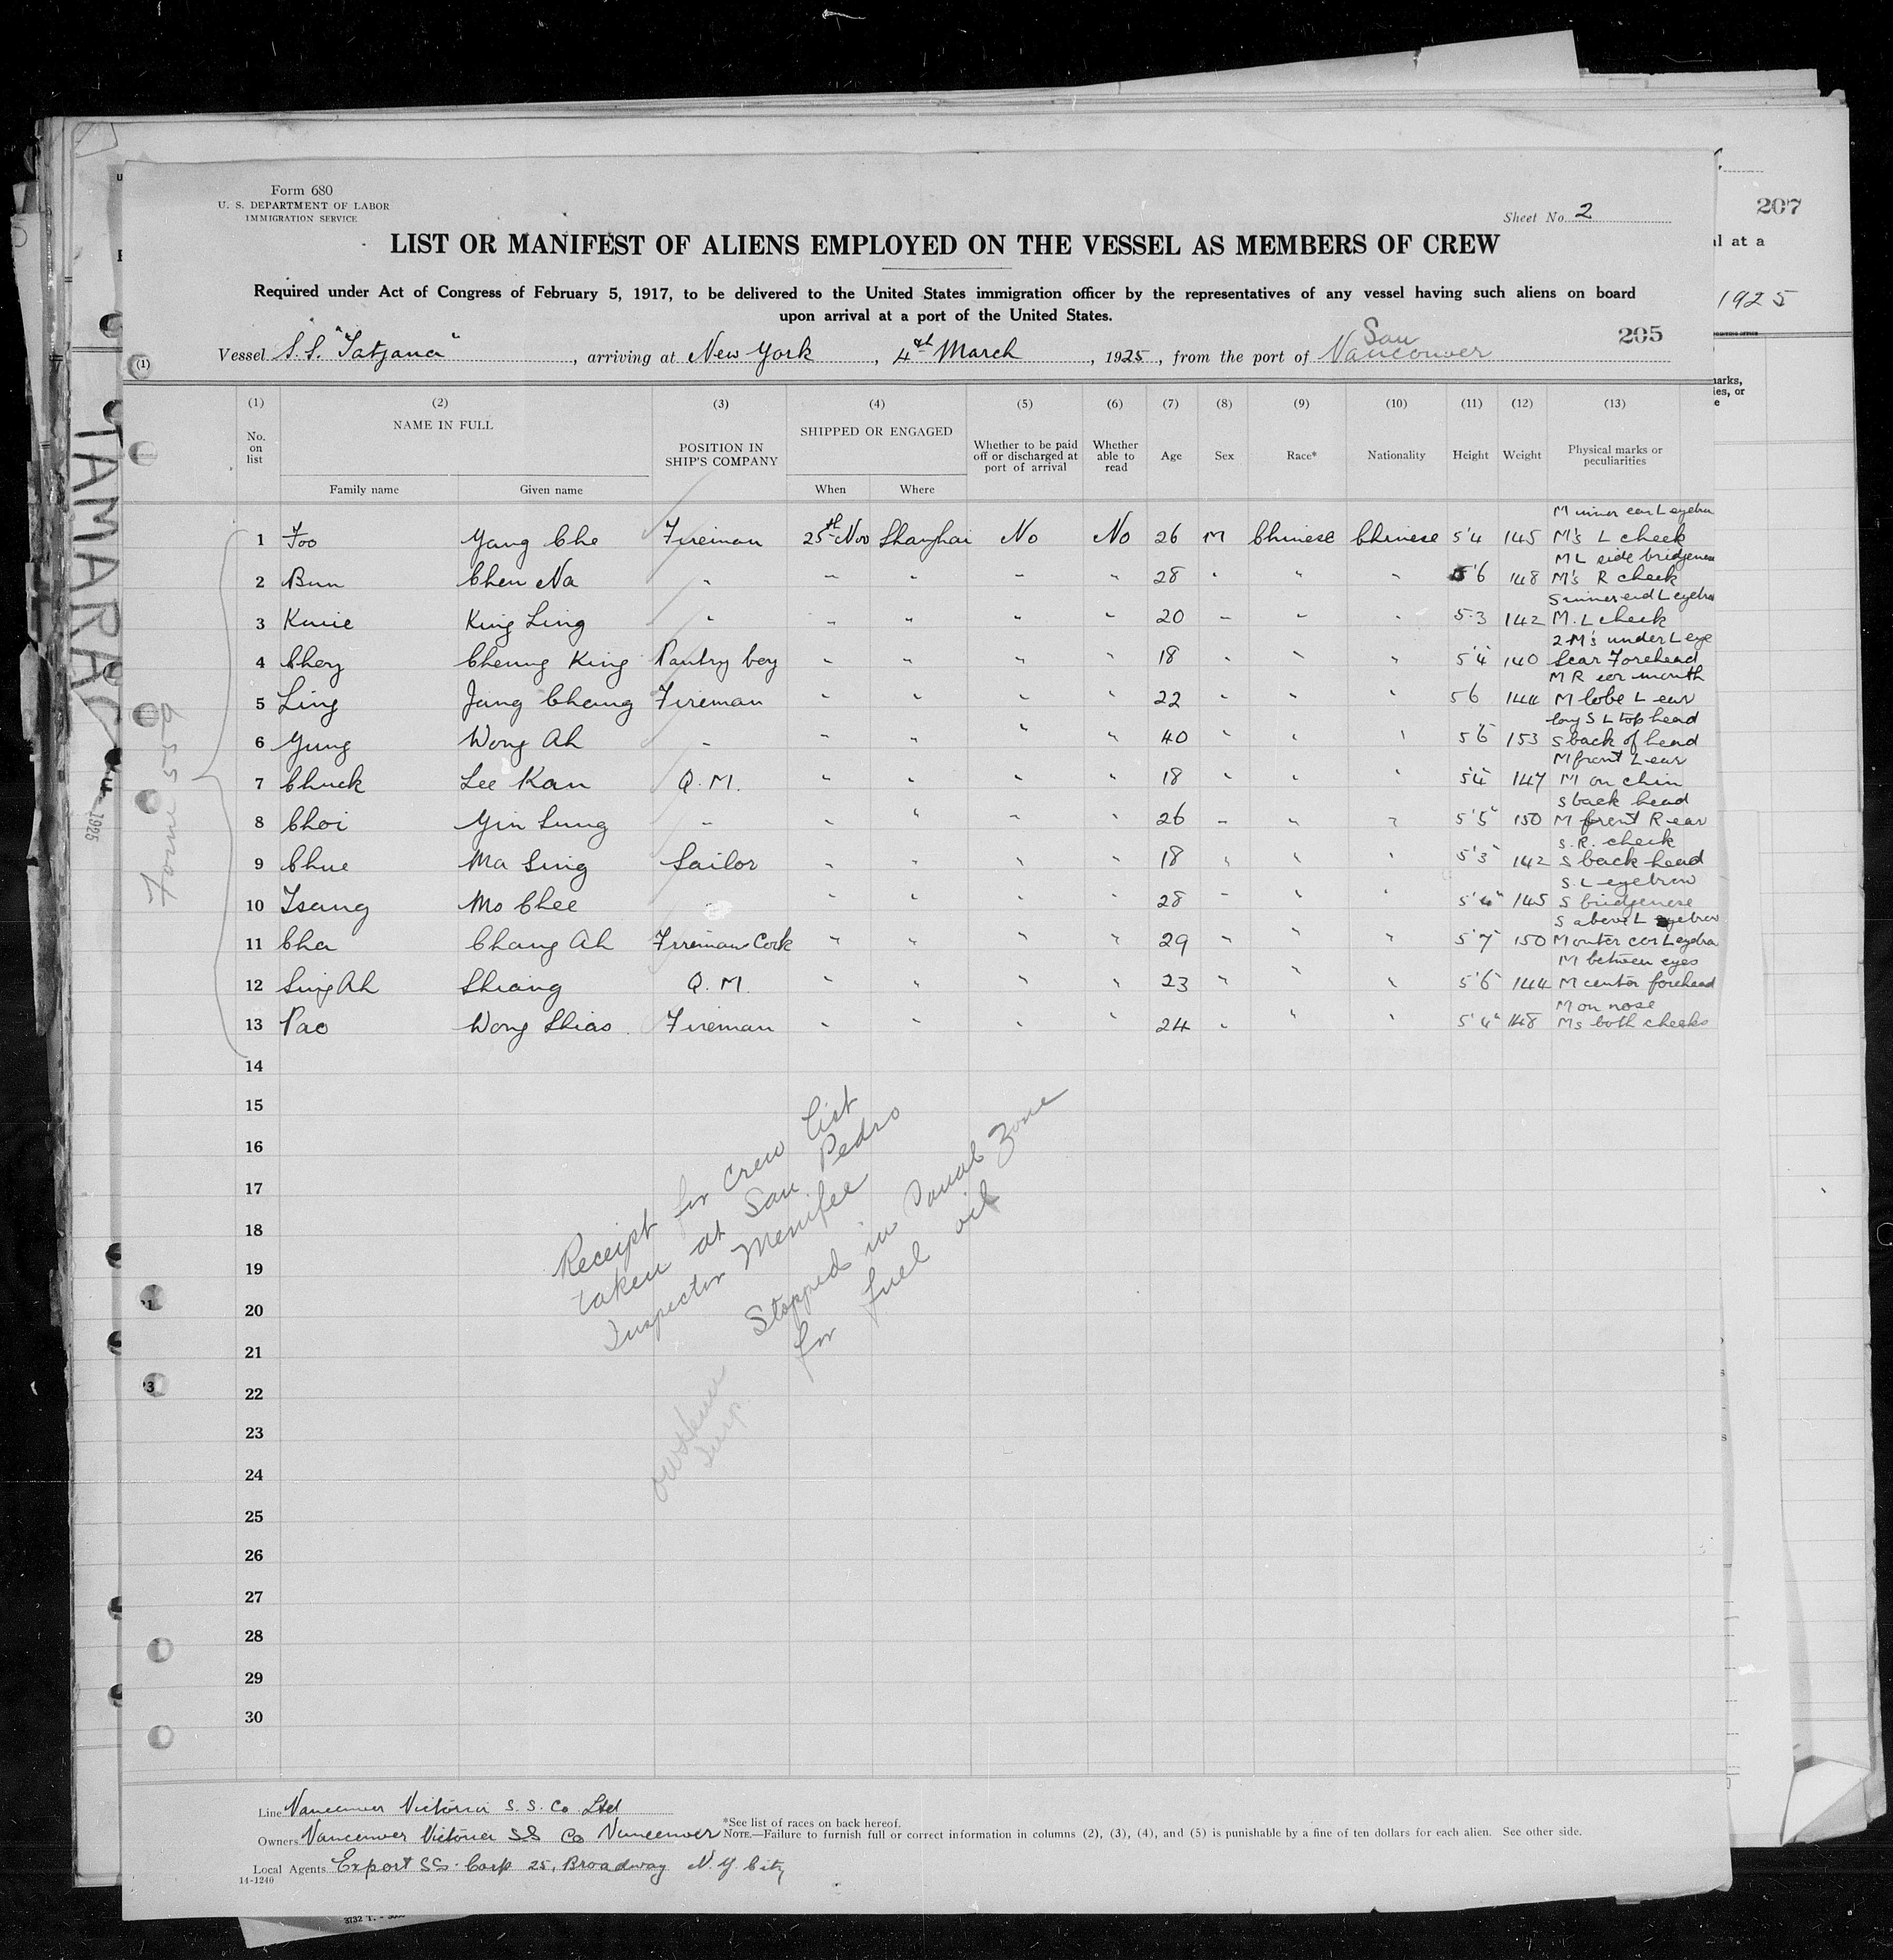 Form 680
U. S. DEPARTMENT OF LABOR
IMMIGRATION SERVICE
Sheet No. 2
207
LIST OR MANIFEST OF ALIENS EMPLOYED ON THE VESSEL AS MEMBERS OF CREW
Required under Act of Congress of February 5, 1917, to be delivered to the United States immigration officer by the representatives of any vessel having such aliens on board
upon arrival at a port of the United States.
al at a
1925
205
San
Vessel S.S. "Tatjana", arriving at New York, 4th March, 1925, from the port of Vancouver
(1) (2) (3) (4) (5) (6) (7) (8) (9) (10) (11) (12) (13)
No. on list
NAME IN FULL
Family name Given name
POSITION IN SHIP'S COMPANY
SHIPPED OR ENGAGED
When Where
Whether to be paid off or discharged at port of arrival
Whether able to read
Age Sex Race* Nationality Height Weight Physical marks or peculiarities
M inner cor L eyebrow
1 Foo Yang Che Fireman 25th Nov Shanghai No No 26 M Chinese Chinese 5'4 145 M's L cheek
M L side bridgenose
2 Bun Chen Na " " " " " 28 " " " 5'6 148 M's R cheek
S inner end L eyebrow
3 King Ling " " " " " 20 " " " 5-3 142 M. L cheek
2 M's under L eye
4 Choy Cheung King Pantry boy " " " " 18 " " " 5'4" 140 Scar Forehead
M R cor mouth
5 Ling Jung Chang Fireman " " " " 22 " " " 5 6 144 M lobe L ear
long S L top head
6 Yung Wong Ah " " " " " 40 " " " 5 6" 153 S back of head
M front L ear
7 Chuck Lee Kan Q. M. " " " " 18 " " " 5'4" 147 M on chin
S back head
8 Choi Yin Sung " " " " " 26 " " " 5'5" 150 M front R ear
S. R. cheek
9 Chue Ma Sing Sailor " " " " 18 " " " 5'3" 142 S back head
S. L eyebrow
10 Tsang Mo Chee " " " " " 28 " " " 5'4" 145 S bridgenose
S above L eyebrow
11 Cha Chang Ah Firemans Cook " " " " 29 " " " 5'7" 150 M outer cor L eyebro
M between eyes
12 Sing Ah Shiang Q. M. " " " " 23 " " " 5'6" 144 M center forehead
M on nose
13 Pao Wong Shiao Fireman " " " " 24 " " " 5'4" 148 Ms both cheeks
14
15
16
17
18
19
20
21
22
23
24
25
26
27
28
29
30
Form 559
TAMARAC
1925
Receipt for Crew List
taken at San Pedro
Inspector Menifee
Stopped in Canal Zone
for fuel oil
Insp.
Line Vancouver Victoria S. S. Co Ltd
Owners Vancouver Victoria SS Co Vancouver
Local Agents Export SS. Corp 25, Broadway N.Y. City
14-1240
*See list of races on back hereof.
NOTE.—Failure to furnish full or correct information in columns (2), (3), (4), and (5) is punishable by a fine of ten dollars for each alien. See other side.